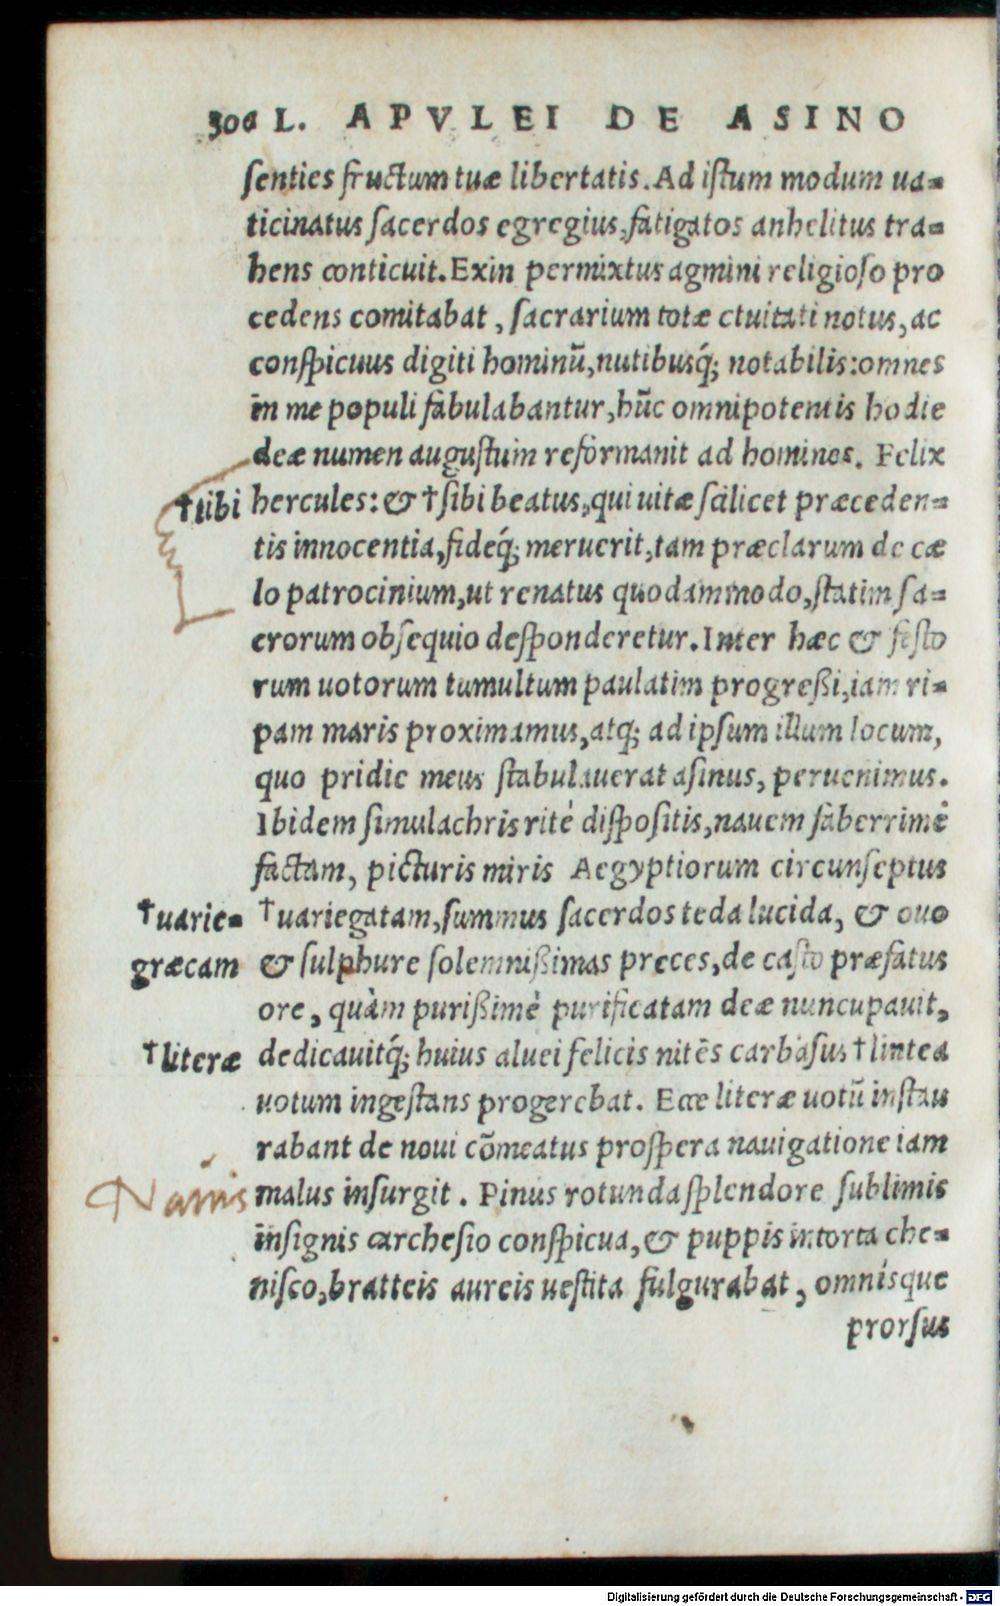 306 L. APVLEI DE ASINO
ſenties fructum tuæ libertatis. Ad iſtum modum ua-
ticinatus ſacerdos egregius, fatigatos anhelitus tra-
hens conticuit. Exin permixtus agmini religioſo pro
cedens comitabat, ſacrarium totæ ctuitati notus, ac
conſpicuus digiti hominū, nutibusq́; notabilis: omnes
in me populi fabulabantur, hūc omnipotentis hodie
deæ numen auguſtum reformanit ad homines. Felix
†tibi hercules: & †ſibi beatus, qui uitæ ſcilicet præceden-
tis innocentia, fideq́; meruerit, tam præclarum de cæ
lo patrocinium, ut renatus quodammodo, ſtatim ſa-
crorum obſequio deſponderetur. Inter hæc & feſto
rum uotorum tumultum paulatim progreßi, iam ri-
pam maris proximamus, atq; ad ipſum illum locum,
quo pridie meus ſtabulauerat aſinus, peruenimus.
Ibidem ſimulachris ritè diſpoſitis, nauem faberrimè
factam, picturis miris Aegyptiorum circunſeptus
†uarie- †uariegatam, ſummus ſacerdos teda lucida, & ouo
græcam & ſulphure ſolemnißimas preces, de caſto præfatus
ore, quàm purißimè purificatam deæ nuncupauit,
†literæ dedicauitq́; huius aluei felicis nitēs carbaſus †lintea
uotum ingeſtans progerebat. Ecce literæ uotū inſtau
rabant de noui cōmeatus proſpera nauigatione iam
Nauis malus inſurgit. Pinus rotunda ſplendore ſublimis
inſignis carcheſio conſpicua, & puppis intorta che-
niſco, bratteis aureis ueſtita fulgurabat, omnísque
prorſus
Digitalisierung gefördert durch die Deutsche Forschungsgemeinschaft - DFG